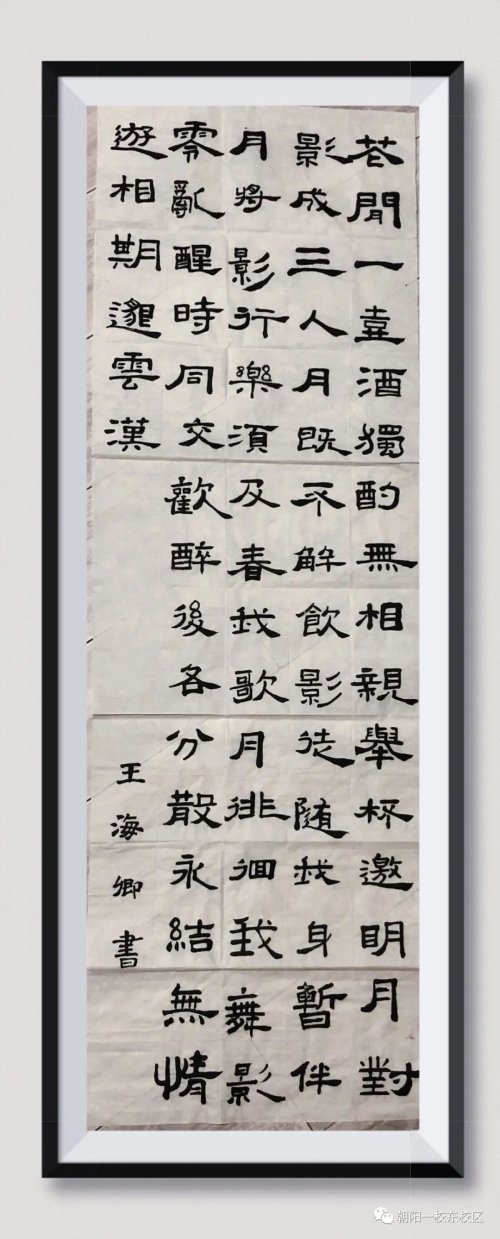 花間一壺酒獨酌無相親舉杯邀明月對
影成三人月既不解飲影徒随我身暫伴
月將影行樂須及春我歌月徘徊我舞影
零亂醒時同交歡醉後各分散永結無情
遊相期邈雲漢
王海卿書
朝阳一校东校区